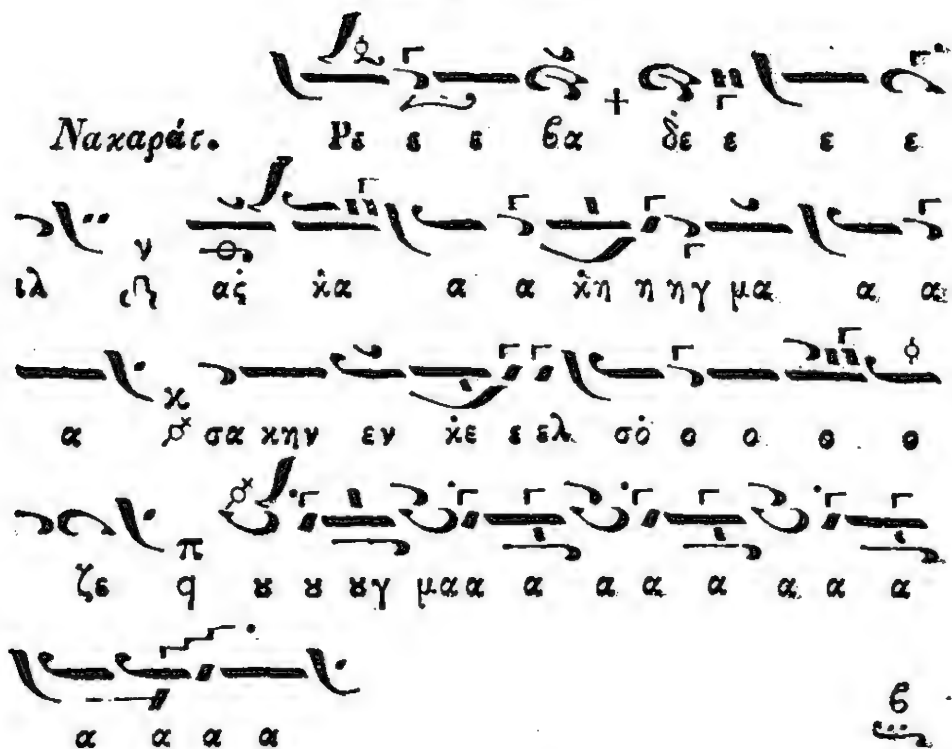 Νακαράτ. Ρε ε ε ϐα δ̇ε ε ε ε
ιλ ν ας̇ κ̇α α α κ̇η η ηγ μα α α
α ϰ σα κην εν κ̇ε ε ελ σο̇ ο ο ο ο
ζε π q ȣ ȣ ȣγ μαα α α α α α α α
α α α α ϐ